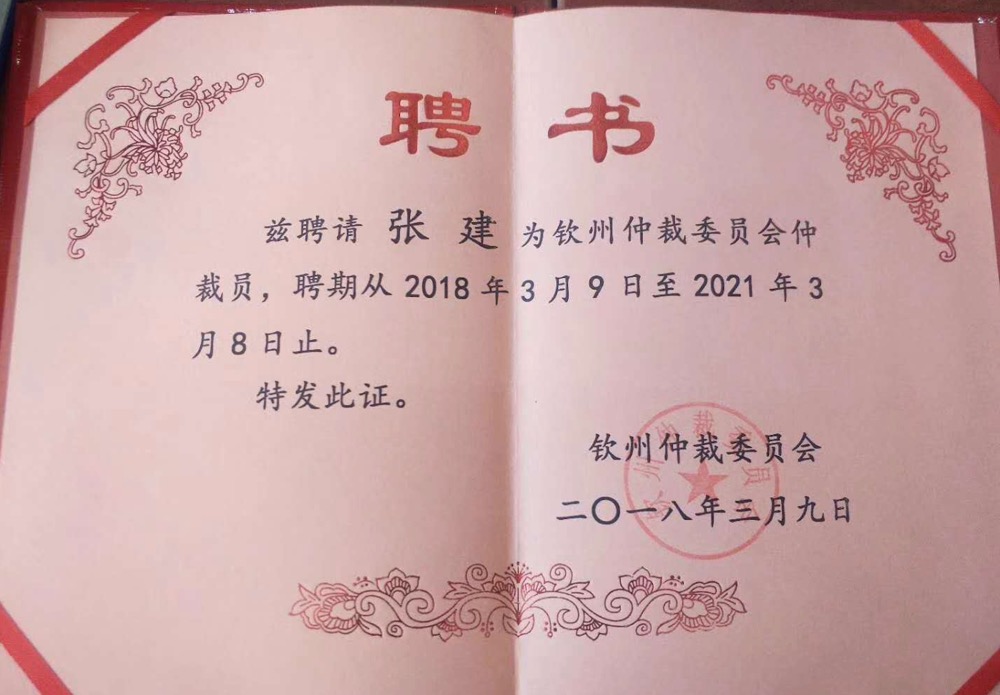 聘书
兹聘请 张 建 为钦州仲裁委员会仲
裁员，聘期从 2018 年 3 月 9 日至 2021 年 3
月 8 日止。
特发此证。
钦州仲裁委员会
二〇一八年三月九日
钦州仲裁委员会